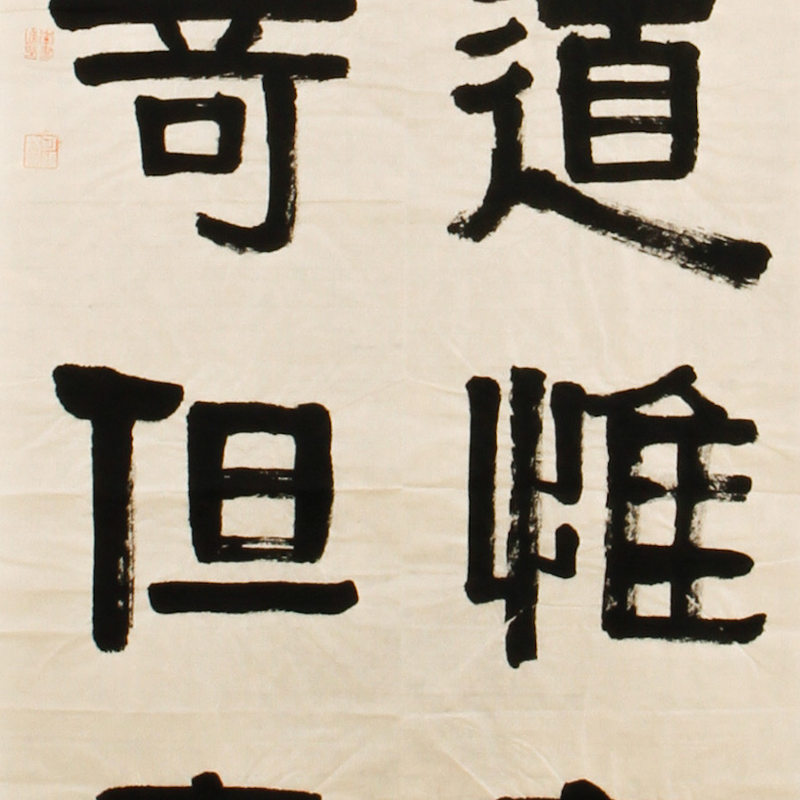 道惟
奇但